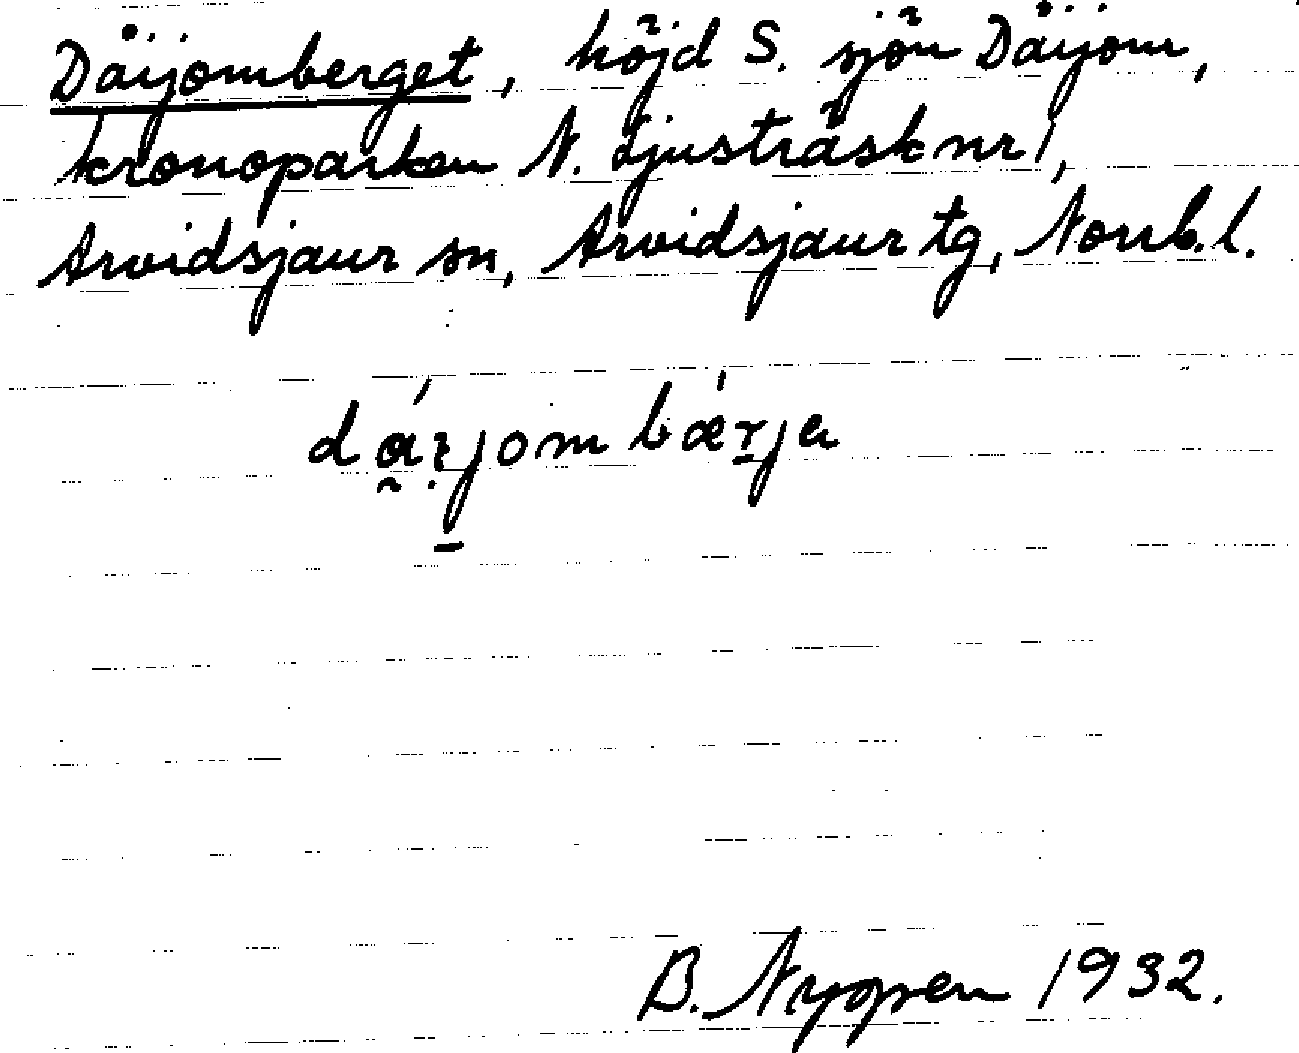 Däijomberget, höjd S. sjön Däijom,
kronoparken N. Ljusträsk nr 1,
Arvidsjaur sn, Arvidsjaur tg, Norrb. l.
B. Nygren 1932.